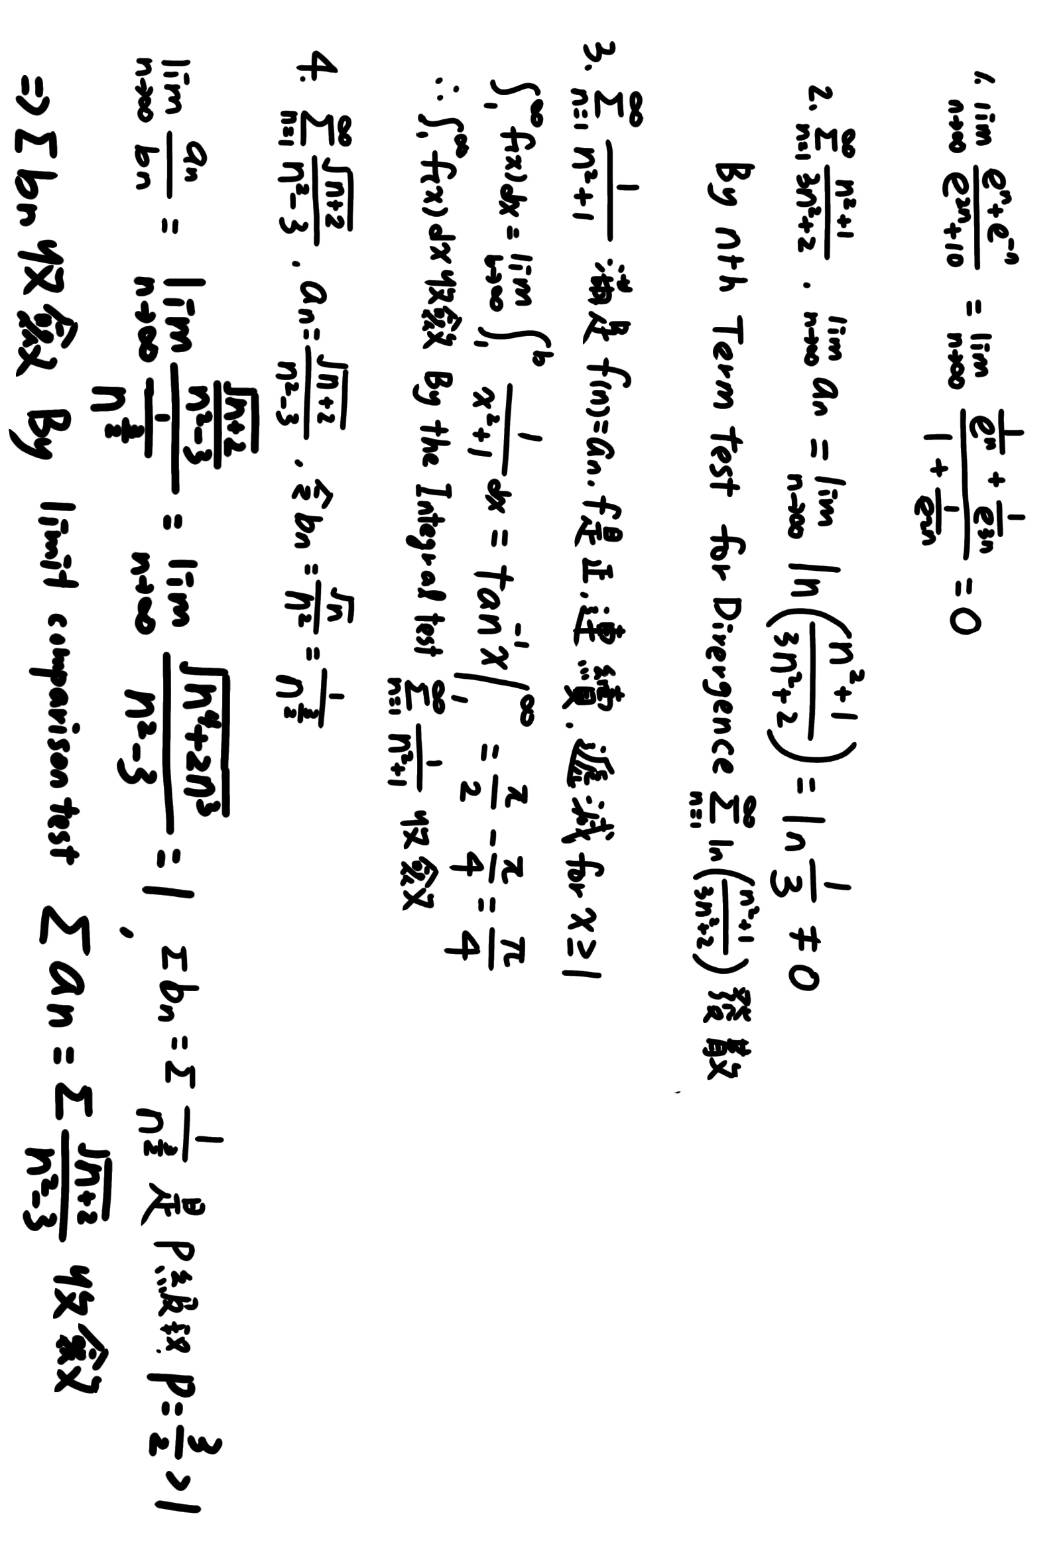 1. lim_{n→∞} (e^n+e^{-n})/(e^{2n}+10) = lim_{n→∞} (1/e^n + 1/e^{3n})/(1+1/e^{2n}) = 0
2. Σ_{n=1}^{∞} (n²+1)/(3n²+2) . lim_{n→∞} an = lim_{n→∞} ln((n²+1)/(3n²+2)) = ln 1/3 ≠ 0
By nth Term test for Dirergence Σ_{n=1}^{∞} ln((n²+1)/(3n²+2)) 發散
3. Σ_{n=1}^{∞} 1/(n²+1) 滿足 f(n)=an. f是正.連續. 遞減 for x≥1
∫_1^∞ f(x)dx = lim_{b→∞} ∫_1^b 1/(x²+1) dx = tan^{-1}x|_1^∞ = π/2 - π/4 = π/4
∴ ∫_1^∞ f(x)dx收斂 By the Integral test Σ_{n=1}^{∞} 1/(n²+1) 收斂
4. Σ_{n=1}^{∞} √(n+2)/(n²-3) . an = √(n+2)/(n²-3) . 令bn = √n/n² = 1/n^{3/2}
lim_{n→∞} an/bn = lim_{n→∞} (√(n+2)/(n²-3))/(1/n^{3/2}) = lim_{n→∞} √(n⁴+2n³)/(n²-3) = 1 , Σbn = Σ 1/n^{3/2} 是P級數. P=3/2 >1
⇒ Σbn收斂 By limit comparison test Σan = Σ √(n+2)/(n²-3) 收斂